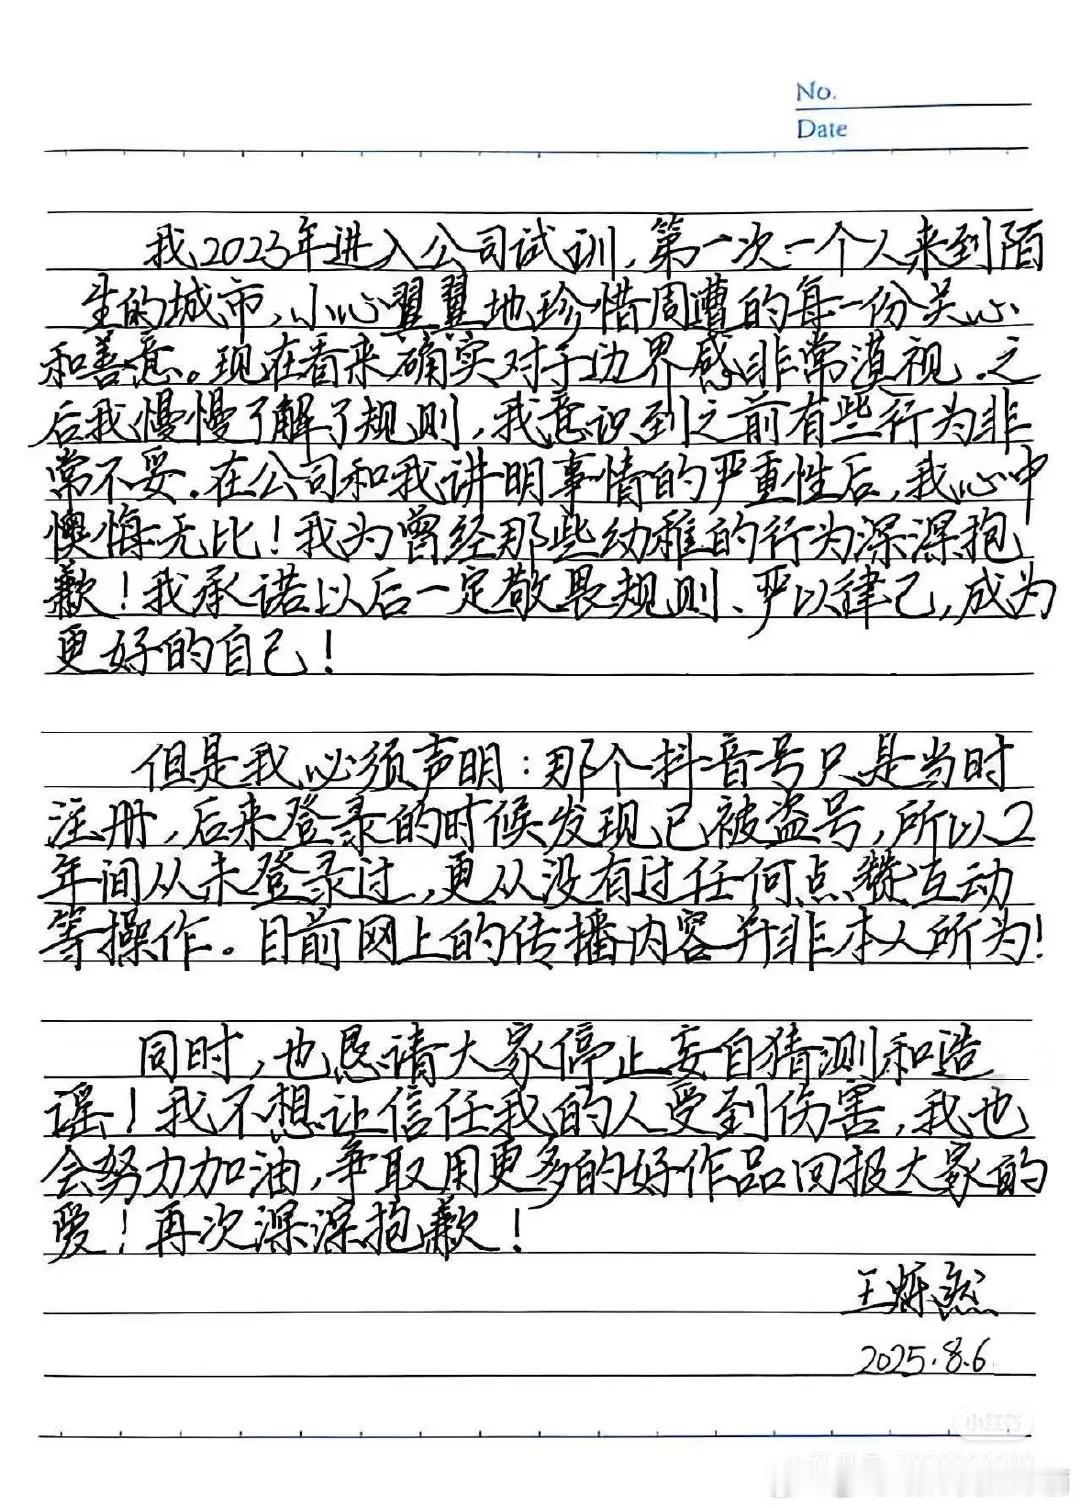 No.
Date
我2023年进入公司试训,第一次一个人来到陌
生的城市,小心翼翼地珍惜周遭的每一份关心
和善意。现在看来确实对于边界感非常漠视.之
后我慢慢了解了规则,我意识到之前有些行为非
常不妥.在公司和我讲明事情的严重性后,我心中
懊悔无比!我为曾经那些幼稚的行为深深抱
歉!我承诺以后一定敬畏规则、严以律己,成为
更好的自己!
但是我必须声明:那个抖音号只是当时
注册,后来登录的时候发现已被盗号,所以2
年间从未登录过,更从没有过任何点赞互动
等操作。目前网上的传播内容并非本人所为!
同时,也恳请大家停止妄自猜测和造
谣!我不想让信任我的人受到伤害,我也
会努力加油,争取用更多的好作品回报大家的
爱!再次深深抱歉!
王烁然
2025.8.6
小红书